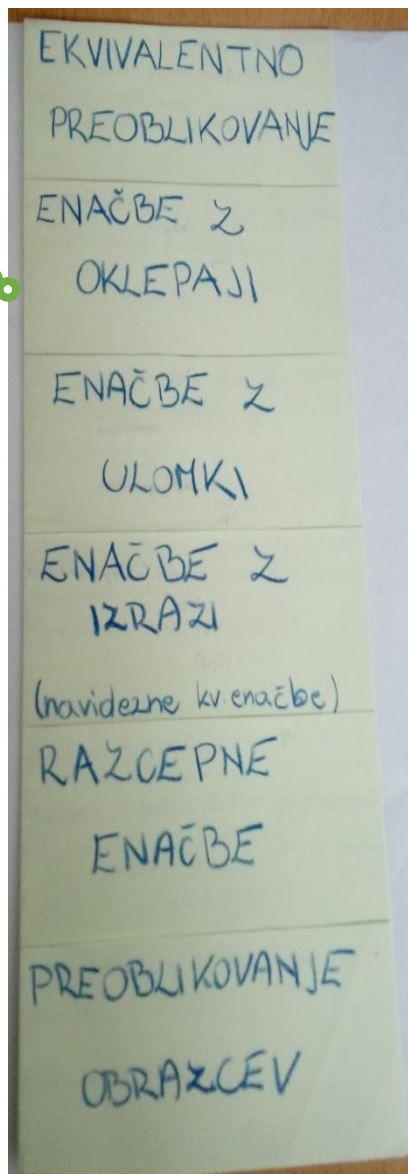 EKVIVALENTNO
PREOBLIKOVANJE
ENAČBE Z
OKLEPAJI
ENAČBE Z
ULOMKI
ENAČBE Z
IZRAZI
(navidezne kv. enačbe)
RAZCEPNE
ENAČBE
PREOBLIKOVANJE
OBRAZCEV